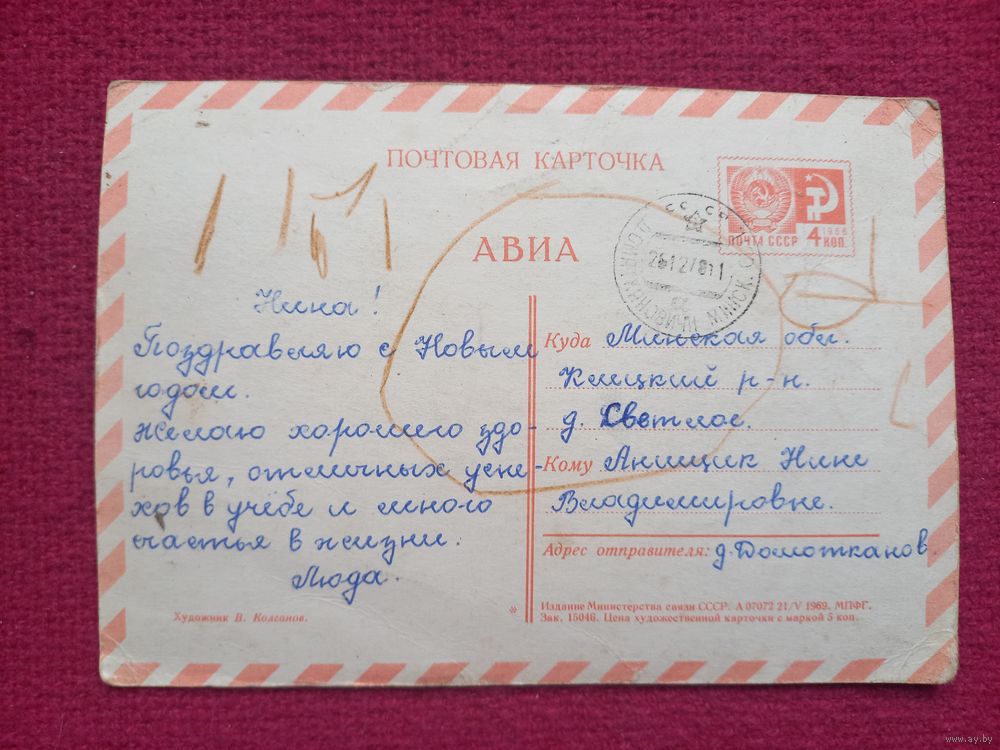 ПОЧТОВАЯ КАРТОЧКА
АВИА
ПОЧТА СССР 4 КОП.
1966
СССР
Нина!
Поздравляю с Новым
годом.
Желаю хорошего здо-
ровья, отличных успе-
хов в учёбе и много
счастья в жизни.
Люда.
Куда Минская обл.
Клецкий р-н.
д. Светлое.
Кому Анищик Нине
Владимировне.
Адрес отправителя: д. Домоткано́в.
Художник В. Колганов.
* Издание Министерства связи СССР. А 07072 21/V 1969. МПФГ.
Зак. 15046. Цена художественной карточки с маркой 5 коп.
www.ay.by